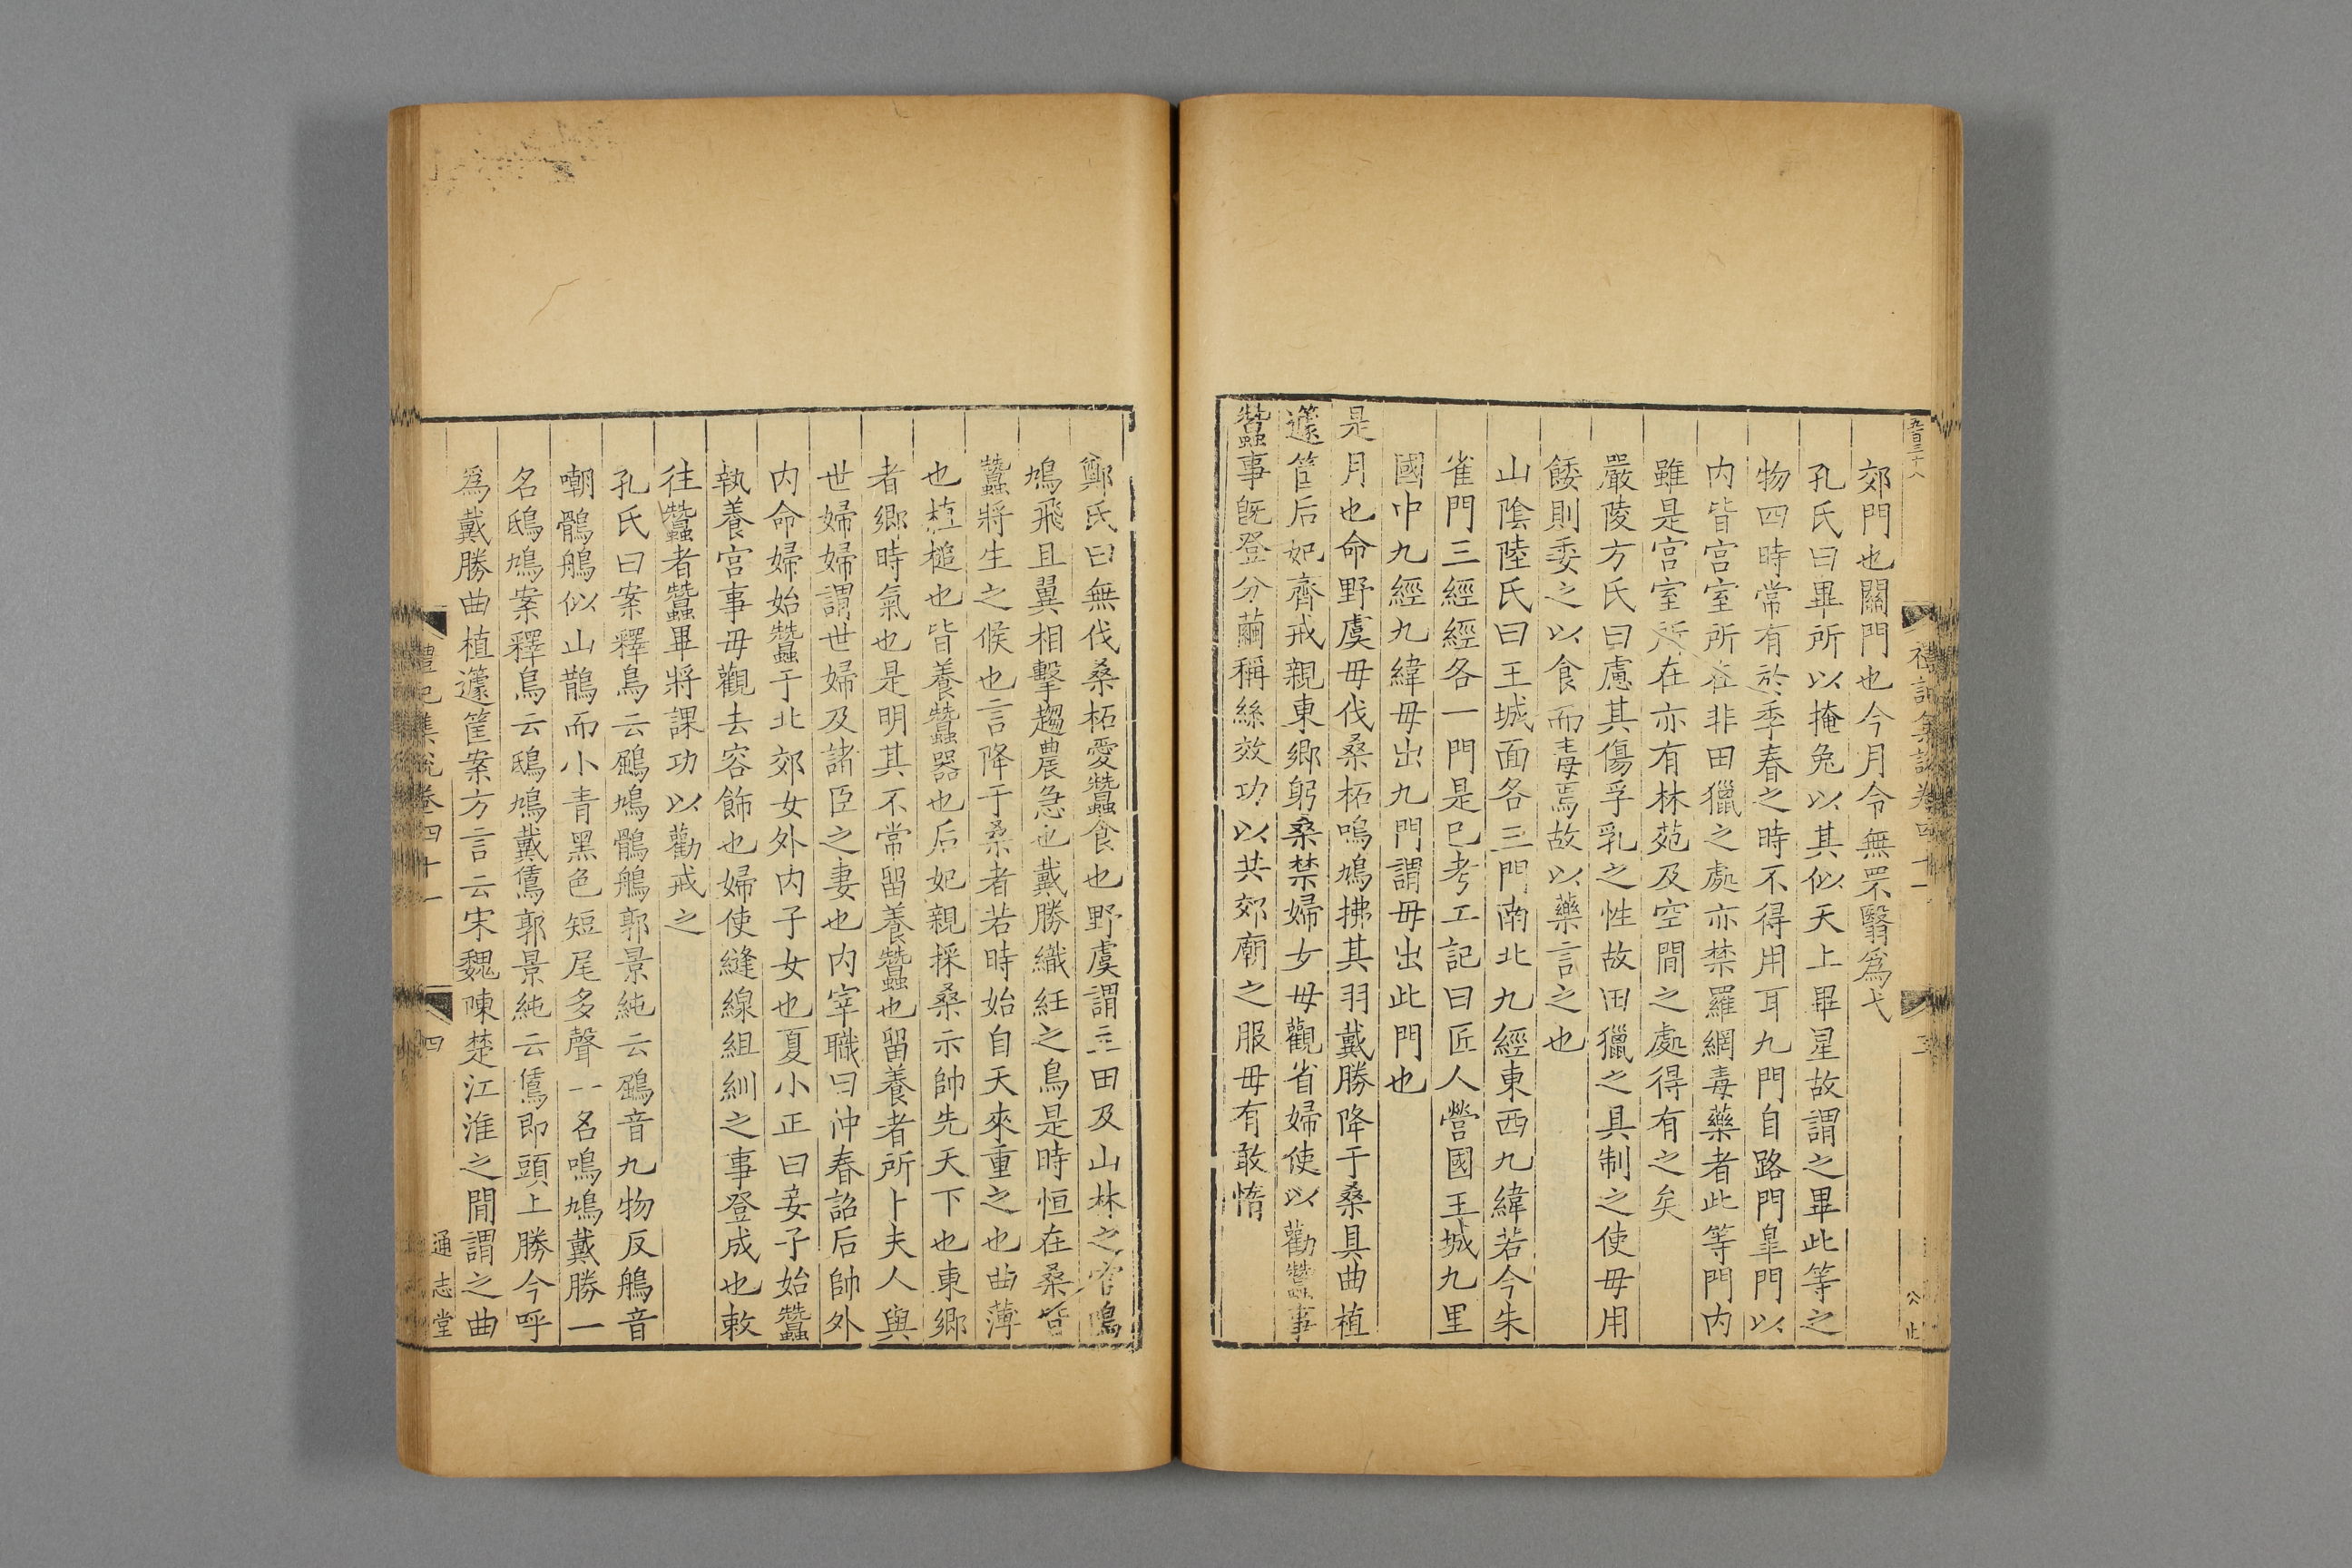 五百三十八
禮記集說卷四十一
三
郊門也關門也今月令無罘翳爲弋
孔氏曰畢所以掩兔以其似天上畢星故謂之畢此等之
物四時常有於季春之時不得用耳九門自路門臯門以
内皆宫室所在非田獵之處亦禁羅網毒藥者此等門内
雖是宫室所在亦有林苑及空閒之處得有之矣
嚴陵方氏曰慮其傷孚乳之性故田獵之具制之使毋用
餧則委之以食而毒焉故以藥言之也
山陰陸氏曰王城面各三門南北九經東西九緯若今朱
雀門三經經各一門是已考工記曰匠人營國王城九里
國中九經九緯毋出九門謂毋出此門也
是月也命野虞毋伐桑柘鳴鳩拂其羽戴勝降于桑具曲植
籧筥后妃齊戒親東鄉躬桑禁婦女毋觀省婦使以勸蠶事
蠶事旣登分繭稱絲效功以共郊廟之服毋有敢惰
鄭氏曰無伐桑柘愛蠶食也野虞謂主田及山林之官鳴
鳩飛且翼相擊趨農急也戴勝織紝之鳥是時恒在桑皆
蠶將生之候也言降于桑者若時始自天來重之也曲薄
也植槌也皆養蠶器也后妃親採桑示帥先天下也東鄉
者鄉時氣也是明其不常留養蠶也留養者所卜夫人與
世婦婦謂世婦及諸臣之妻也内宰職曰沖春詔后帥外
内命婦始蠶于北郊女外内子女也夏小正曰妾子始蠶
執養宫事毋觀去容飾也婦使縫線組紃之事登成也敕
往蠶者蠶畢將課功以勸戒之
孔氏曰案釋鳥云鶌鳩鶻鵃郭景純云鶌音九物反鵃音
嘲鶻鵃似山鵲而小青黑色短尾多聲一名鳴鳩戴勝一
名鴟鳩案釋鳥云鴟鳩戴鵀郭景純云鵀即頭上勝今呼
爲戴勝曲植籧筐案方言云宋魏陳楚江淮之閒謂之曲
禮記集說卷四十一
四
通志堂